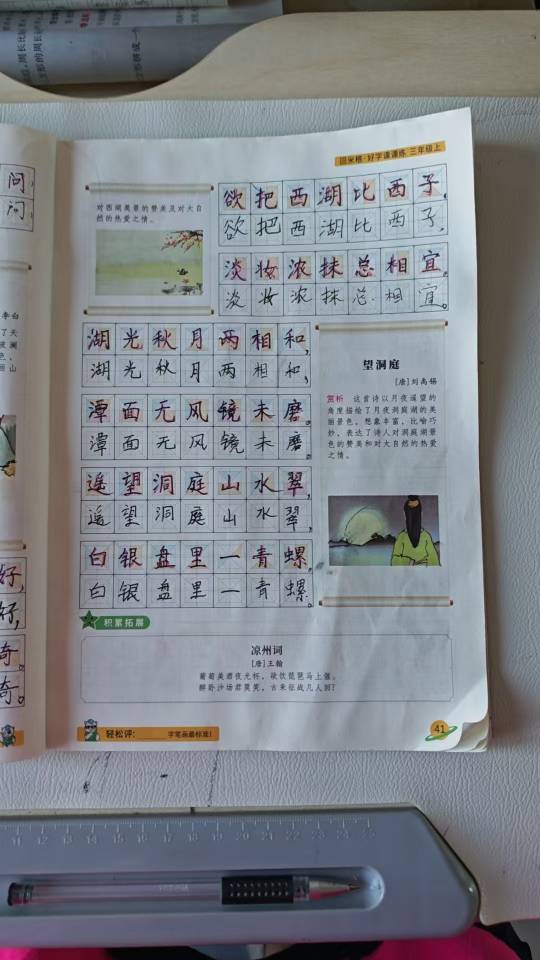 田英楷·好字课课练 三年级上
问
问
李白
好，
好，
奇。
奇。
对西湖美景的赞美及对大自
然的热爱之情。
欲把西湖比西子，
欲把西湖比西子，
淡妆浓抹总相宜
淡妆浓抹总相宜。
湖光秋月两相和，
湖光秋月两相和，
潭面无风镜未磨。
潭面无风镜未磨。
遥望洞庭山水翠，
遥望洞庭山水翠，
白银盘里一青螺。
白银盘里一青螺。
望洞庭
[唐]刘禹锡
赏析 这首诗以月夜遥望的
角度描绘了月夜洞庭湖的美
丽景色。想象丰富，比喻巧
妙，表达了诗人对洞庭湖景
色的赞美和对大自然的热爱
之情。
积累拓展
凉州词
[唐]王翰
葡萄美酒夜光杯，欲饮琵琶马上催。
醉卧沙场君莫笑，古来征战几人回？
轻松评： 字笔画最标准！
41
11 12 13 14 15 16 17 18 19 20 21 22 23 24 25